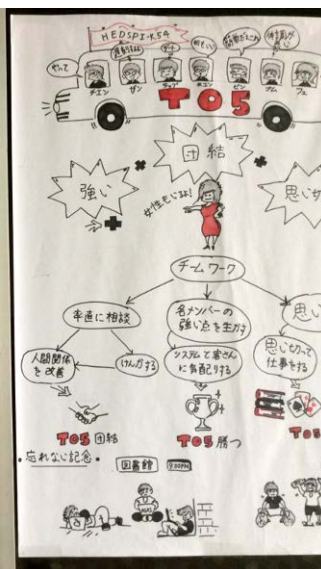 HEDSPI-K54
やって
チエン
ザン
ホコン
ビン
ナム
フェ
TO5
団結
強い
思い切
女性もいるよ!
チームワーク
率直に相談
名メンバーの
強い点を生かす
思い
人間関係
を改善
けんかする
システムと客さん
に気配りする
思い切って
仕事をする
TO5 団結
TO5 勝つ
TO5
忘れない記念
図書館
9:00PM